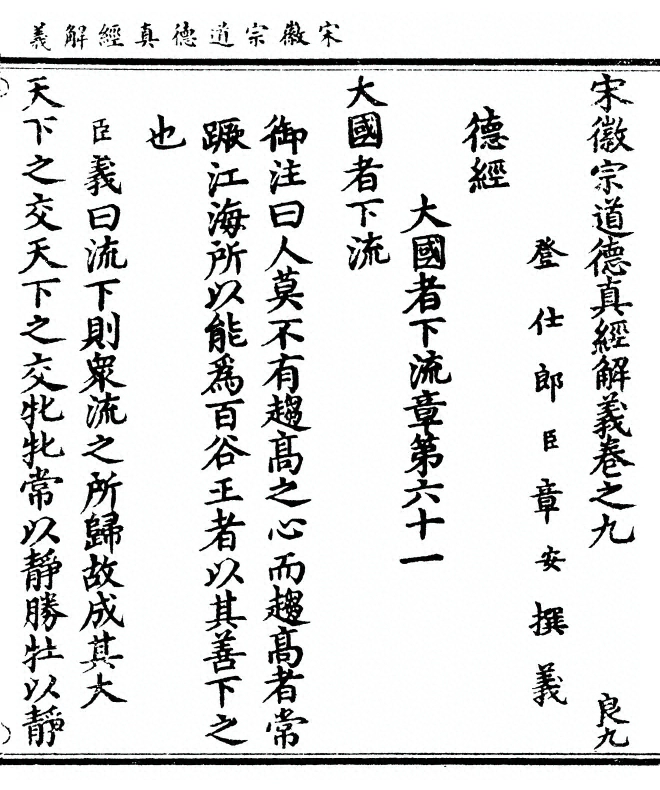 宋徽宗道德真經解義
宋徽宗道德真經解義卷之九
良九
登仕郎臣章安撰義
德經
大國者下流章第六十一
大國者下流
御注曰人莫不有趨高之心而趨高者常
蹶江海所以能爲百谷王者以其善下之
也
臣義曰流下則衆流之所歸故成其大
天下之交天下之交牝牝常以靜勝牡以靜